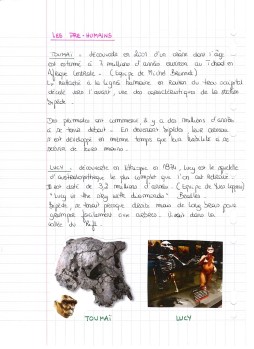 LES PRE-HUMAINS
TOUMAÏ : découverte en 2001 d'un crâne dont l'âge
est estimé à 7 millions d'années environ au Tchad en
Afrique Centrale. (Equipe de Michel Brunet)
humaine en raison du trou occipital
décalé vers l'avant, une des caractéristiques de la station
bipède.
Des primates ont commencé, il y a des millions d'années
à se tenir debout. En devenant bipèdes leur cerveau
s'est développé en même temps que leur habileté à se
servir de leurs mains.
LUCY : découverte en Ethiopie en 1974, Lucy est le squelette
d'australopithèque le plus complet que l'on ait
Il est daté de 3,2 millions d'années. (Equipe de Yves Coppens)
"Lucy in the sky with diamonds" Beatles
Bipède, se tenait presque droite mais de longs bras pour
grimper facilement aux arbres. Vivait dans la
vallée du Rift.
TOUMAÏ
LUCY